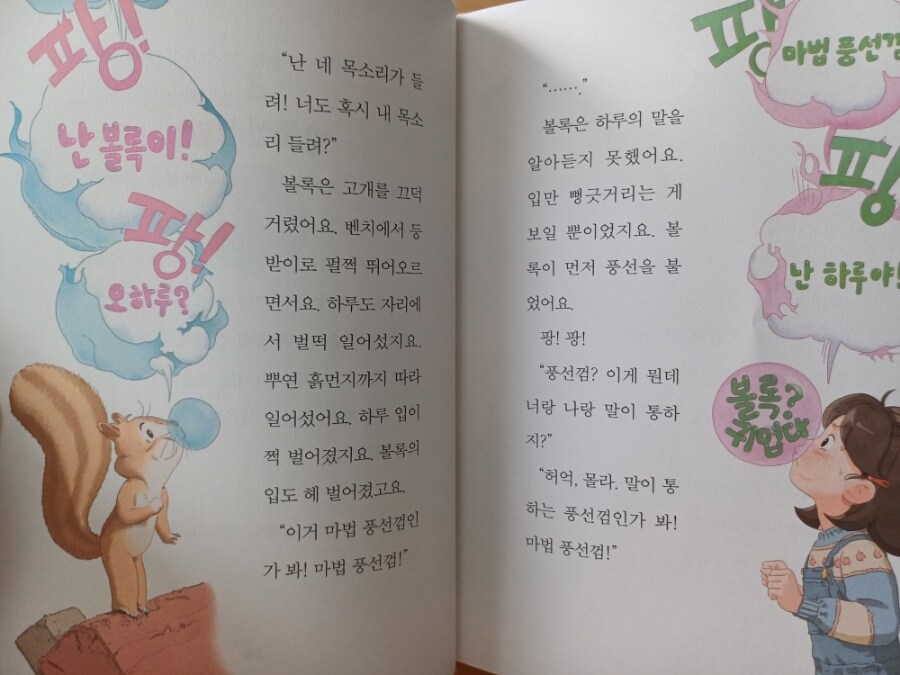 팡!
난 볼록이!
팡!
오하루?
“난 네 목소리가 들
려! 너도 혹시 내 목소
리 들려?”
볼록은 고개를 끄덕
거렸어요. 벤치에서 등
받이로 펄쩍 뛰어오르
면서요. 하루도 자리에
서 벌떡 일어섰지요.
뿌연 흙먼지까지 따라
일어섰어요. 하루 입이
쩍 벌어졌지요. 볼록의
입도 헤 벌어졌고요.
“이거 마법 풍선껌인
가 봐! 마법 풍선껌!”
“……”
볼록은 하루의 말을
알아듣지 못했어요.
입만 뻥긋거리는 게
보일 뿐이었지요. 볼
록이 먼저 풍선을 불
었어요.
팡! 팡!
“풍선껌? 이게 뭔데
너랑 나랑 말이 통하
지?”
“허억, 몰라. 말이 통
하는 풍선껌인가 봐!
마법 풍선껌!”
팡
마법 풍선껌
팡!
난 하루야!
볼록?
귀엽다